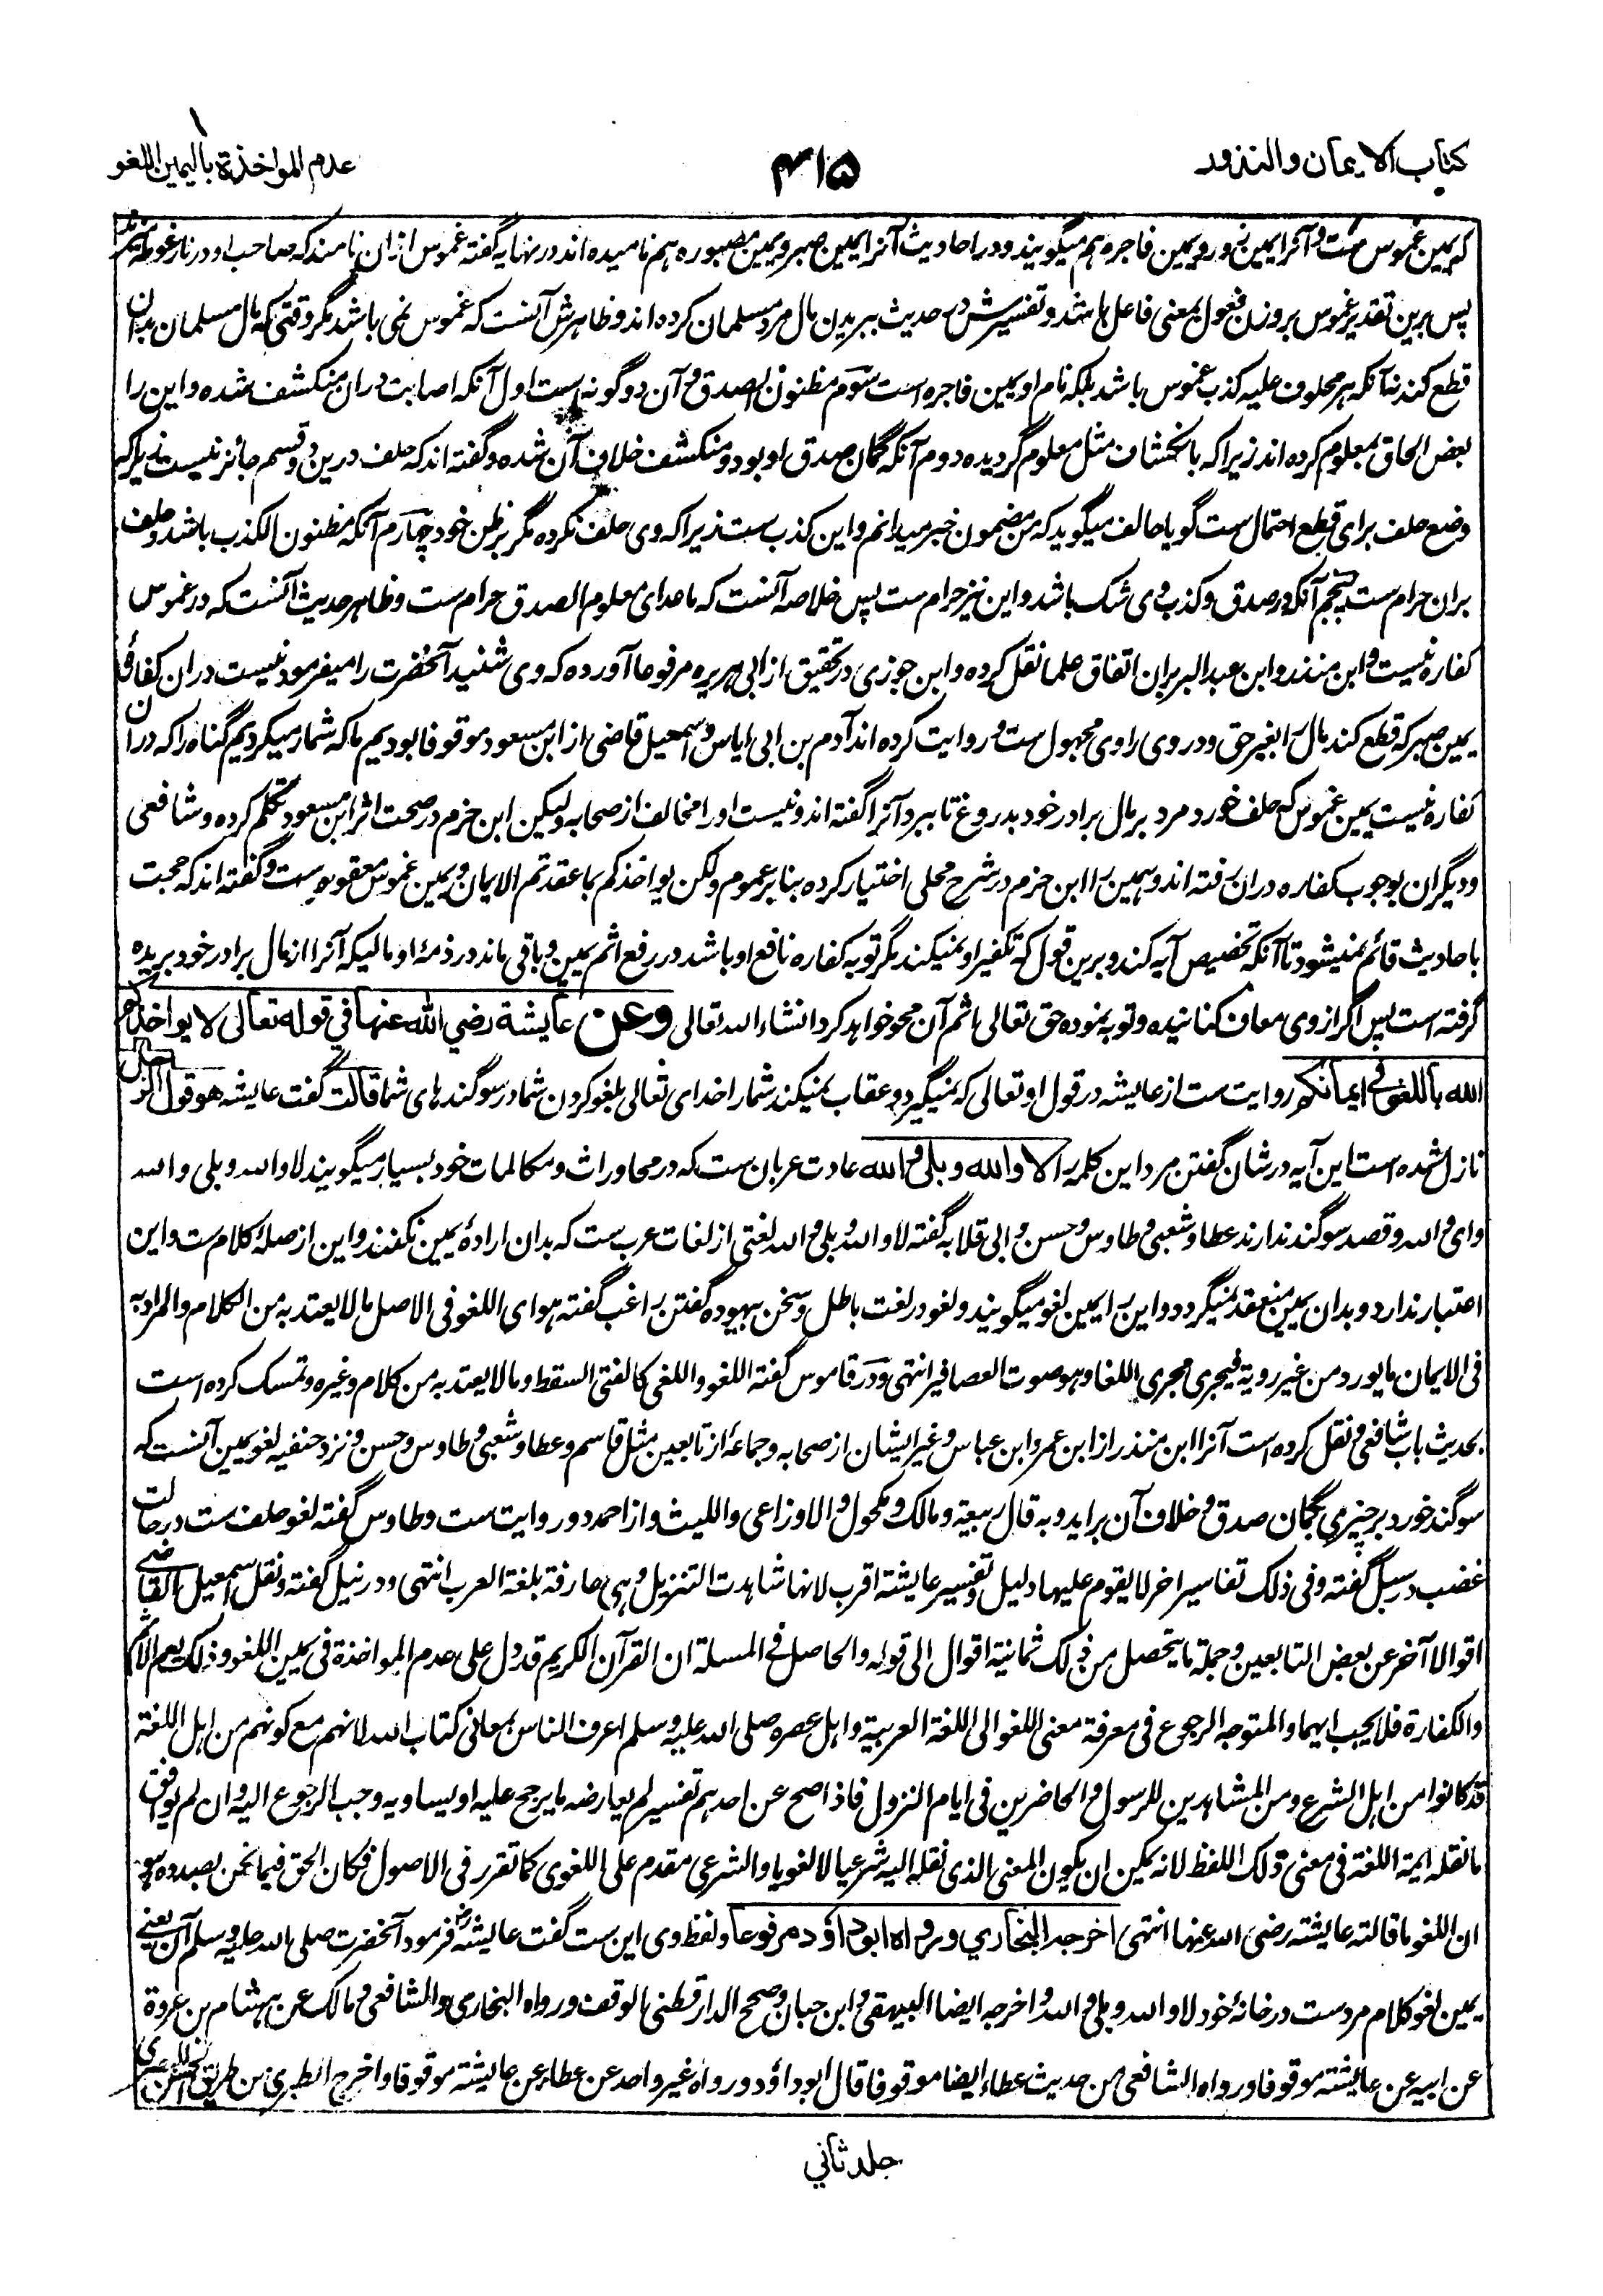 كتاب الايمان والنذور
۴۱۵
عدم المواخذة باليمين اللغو
كه يمين غموس ست و آنرا يمين زور و يمين فاجره هم ميگويند و در احاديث آنرا يمين صبر و يمين مصبوره هم ناميده اند در نهايه گفته غموس ازان نامند كه صاحب او در نار غوطه
پس برين تقدير غموس بروزن فعول بمعنى فاعل باشد و تفسيرش در حديث ببريدن مال مرد مسلمان كرده اند و ظاهرش آنست كه غموس نمى باشد مگر وقتى كه مال مسلمان بدان
قطع كند نه آنكه هر محلوف عليه كذب غموس باشد بلكه نام او يمين فاجره است سوم مظنون الصدق و آن دو گونه است اول آنكه اصابت دران منكشف شده و اين را
بعض الحاق بمعلوم كرده اند زيرا كه بانكشاف مثل معلوم گرديده دوم آنكه گمان صدق او بود و منكشف خلاف آن شده و گفته اند كه حلف درين دو قسم جائز نيست زيرا كه
وضع حلف براى قطع احتمال ست گويا حالف ميگويد كه من مضمون خبر ميدانم و اين كذب ست زيرا كه وى حلف نكرده مگر بر ظن خود چهارم آنكه مظنون الكذب باشد و حلف
بران حرام ست پنجم آنكه در صدق و كذب وى شك باشد و اين نيز حرام ست پس خلاصه آنست كه ماعداى معلوم الصدق حرام ست و ظاهر حديث آنست كه در غموس
كفاره نيست و ابن منذر و ابن عبد البر بران اتفاق علما نقل كرده و ابن جوزى در تحقيق از ابى هريره مرفوعا آورده كه وى شنيد آنحضرت را ميفرمود نيست دران كفاره
يمين صبر كه قطع كند مال را بغير حق و در وى راوى مجهول ست و روايت كرده اند آدم بن ابى اياس و اسمعيل قاضى از ابن مسعود موقوفا بوديم ما كه شمار ميكرديم گناه را كه دران
كفاره نيست يمين غموس كه حلف خورد مرد بر مال برادر خود بدروغ تا ببرد آنرا گفته اند و نيست او را مخالف از صحابه وليكن ابن حزم در صحت اثر ابن مسعود تكلم كرده و شافعى
و ديگران بوجوب كفاره دران رفته اند و همين را ابن حزم در شرح محلى اختيار كرده بنا بر عموم ولكن يواخذكم بما عقدتم الايمان و يمين غموس معقوده ست و گفته اند كه حجت
باحاديث قائم نميشود تا آنكه تخصيص آيه كند و برين قول كه تكفير او نميكند مگر توبه كفاره نافع او باشد در رفع اثم يمين و باقى ماند در ذمهٔ او ماليكه آنرا از مال برادر خود بريده
گرفته است پس اگر از وى معاف كنانيده و توبه نموده حق تعالى اثم آن محو خواهد كرد انشاء الله تعالى وعن عايشة رضي الله عنها في قوله تعالى لا يواخذكم
الله باللغو في ايمانكم روايت ست از عايشه در قول او تعالى كه نميگيرد و عقاب نميكند شما را خداى تعالى بلغو كردن شما در سوگندهاى شما قالت گفت عايشه هو قول الرجل
نازل شده است اين آيه در شان گفتن مرد اين كلمه را لا والله وبلى والله عادت عربان ست كه در محاورات و مكالمات خود بسيار ميگويند لا والله و بلى والله
و اى والله و قصد سوگند ندارند عطا و شعبى و طاوس و حسن و ابى قلابه گفته لا والله و بلى والله لغتى از لغات عرب ست كه بدان ارادهٔ يمين نكنند و اين از صلهٔ كلام ست و اين
اعتبار ندارد و بدان يمين منعقد نميگردد و اين را يمين لغو ميگويند و لغو در لغت باطل و سخن بيهوده گفتن راغب گفته هو اى اللغو فى الاصل ما لا يعتد به من الكلام والمراد به
فى الايمان ما يورد من غير روية فيجرى مجرى اللغا وهو صوت العصافير انتهى و در قاموس گفته اللغو واللغى كالفتى السقط وما لا يعتد به من كلام وغيره و تمسك كرده است
بحديث باب شافعى و نقل كرده است آنرا ابن منذر از ابن عمر و ابن عباس و غير ايشان از صحابه و جماعهٔ از تابعين مثل قاسم و عطا و شعبى و طاوس و حسن و نزد حنفيه لغو يمين آنست كه
سوگند خورد بر چيزى بگمان صدق و خلاف آن برايد و به قال ربيعة ومالك ومكحول والاوزاعى والليث و از احمد دو روايت ست و طاوس گفته لغو حلف ست در حالت
غضب در سبل گفته وفى ذلك تفاسير اخر لا يقوم عليها دليل وتفسير عايشة اقرب لانها شاهدت التنزيل وهى عارفة بلغة العرب انتهى و در نيل گفته ونقل اسمعيل القاضى
اقوالا آخر عن بعض التابعين وجملة ما يتحصل من ذلك ثمانية اقوال الى قوله والحاصل فى المسلة ان القرآن الكريم قد دل على عدم المواخذة فى يمين اللغو وذلك يعم الاثم
والكفارة فلا يجب ايهما والمتوجه الرجوع فى معرفة معنى اللغو الى اللغة العربية واهل عصره صلى الله عليه وسلم اعرف الناس بمعانى كتاب الله لانهم مع كونهم من اهل اللغة
قد كانوا من اهل الشرع ومن المشاهدين للرسول والحاضرين فى ايام النزول فاذا صح عن احدهم تفسير لم يعارضه ما يرجح عليه او يساويه وجب الرجوع اليه وان لم يوافق
ما نقله ايمة اللغة فى معنى ذلك اللفظ لانه يمكن ان يكون المعنى الذى نقله اليه شرعيا لا لغويا والشرعى مقدم على اللغوى كما تقرر فى الاصول فكان الحق فيما نحن بصدده هو
ان اللغو ما قالته عايشة رضى الله عنها انتهى اخرجه البخاري ورواه ابو داؤد مرفوعا و لفظ وى اين ست گفت عايشه فرمود آنحضرت صلى الله عليه وسلم آن يعنى
يمين لغو كلام مردست در خانهٔ خود لا والله و بلى والله واخرجه ايضا البيهقى وابن حبان وصحح الدارقطنى الوقف ورواه البخارى والشافعى ومالك عن هشام بن عروة
عن ابيه عن عايشة موقوفا ورواه الشافعى من حديث عطاء ايضا موقوفا قال ابو داؤد ورواه غير واحد عن عطاء عن عايشة موقوفا واخرج الطبرى من طريق الحسن البصرى
جلد ثاني